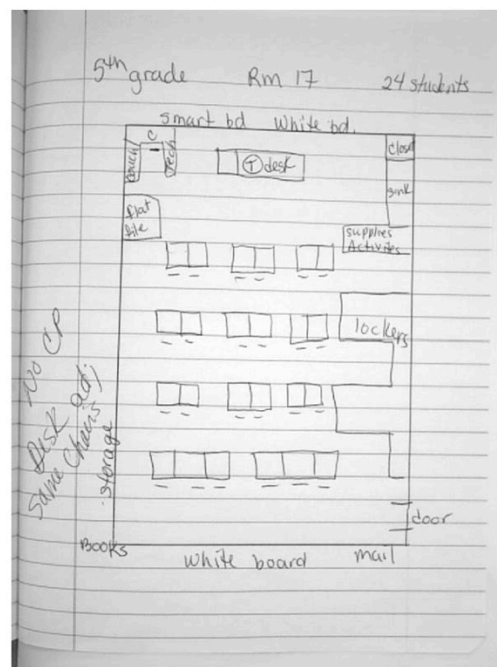 5th grade Rm 17 24 students
smart bd White bd.
C
couch
Tech
T desk
close
sink
flat
file
supplies
Activites
lockers
No CP
Desk adj.
Same Chairs
storage
door
Books
White board
mail